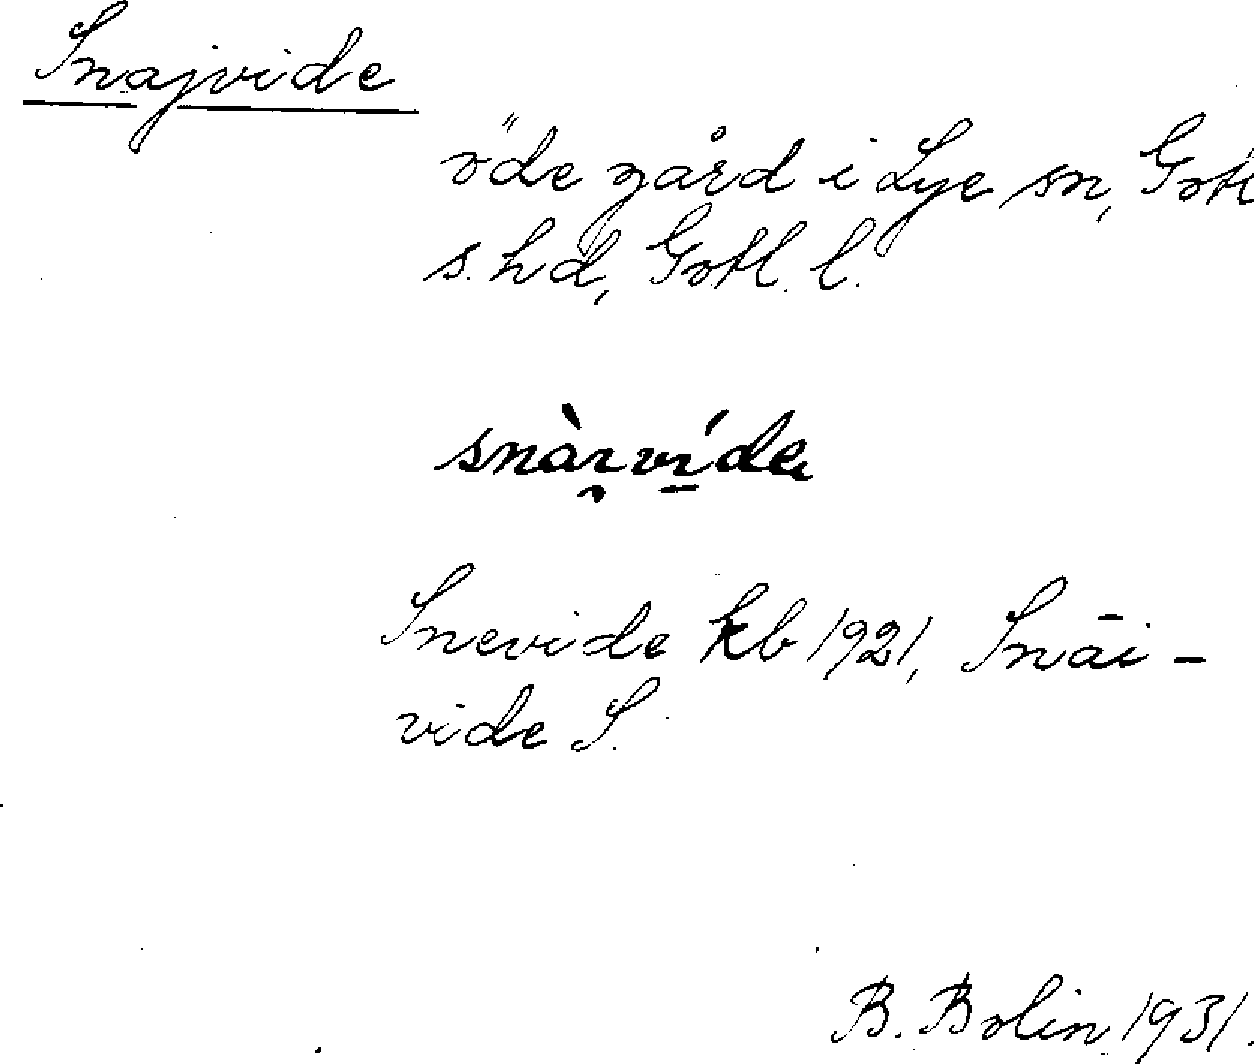 Snajvide
öde gård i Lye sn, Gotl
s. hd, Gotl. l.
Snevide kb 1921, Snāi-
vide S.
B. Bolin 1931.